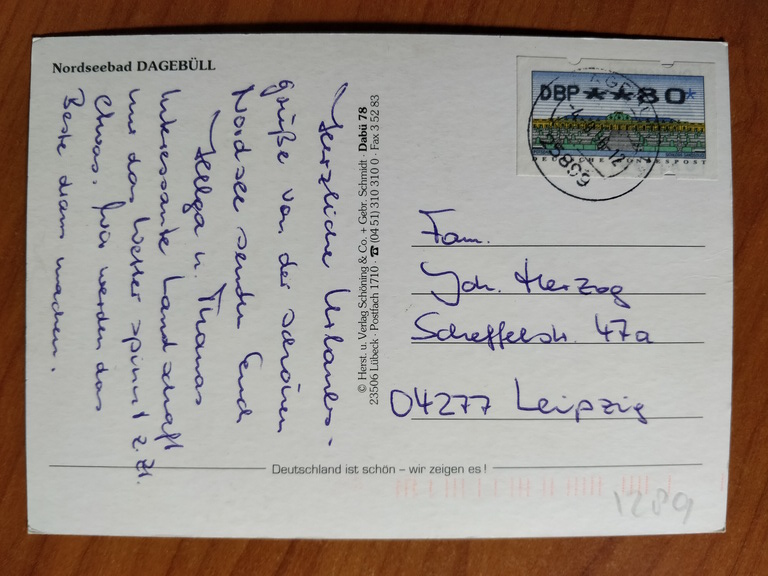 Nordseebad DAGEBÜLL
Herzliche Urlaubs-
grüße von der schönen
Nordsee senden Euch
Helga u. Thomas
Interessante Landschaft
nur das Wetter spinnt z. Zt.
etwas. Wir werden das
Beste draus machen.
© Herst. u. Verlag Schöning & Co. + Gebr. Schmidt · Dabü 78
23506 Lübeck · Postfach 1710 · ☎ (04 51) 310 310 0 · Fax 3 52 83
DBP **80*
DEUTSCHE BUNDESPOST
25899
Fam.
Joh. Herzog
Scheffelstr. 47a
04277 Leipzig
Deutschland ist schön – wir zeigen es !
1289